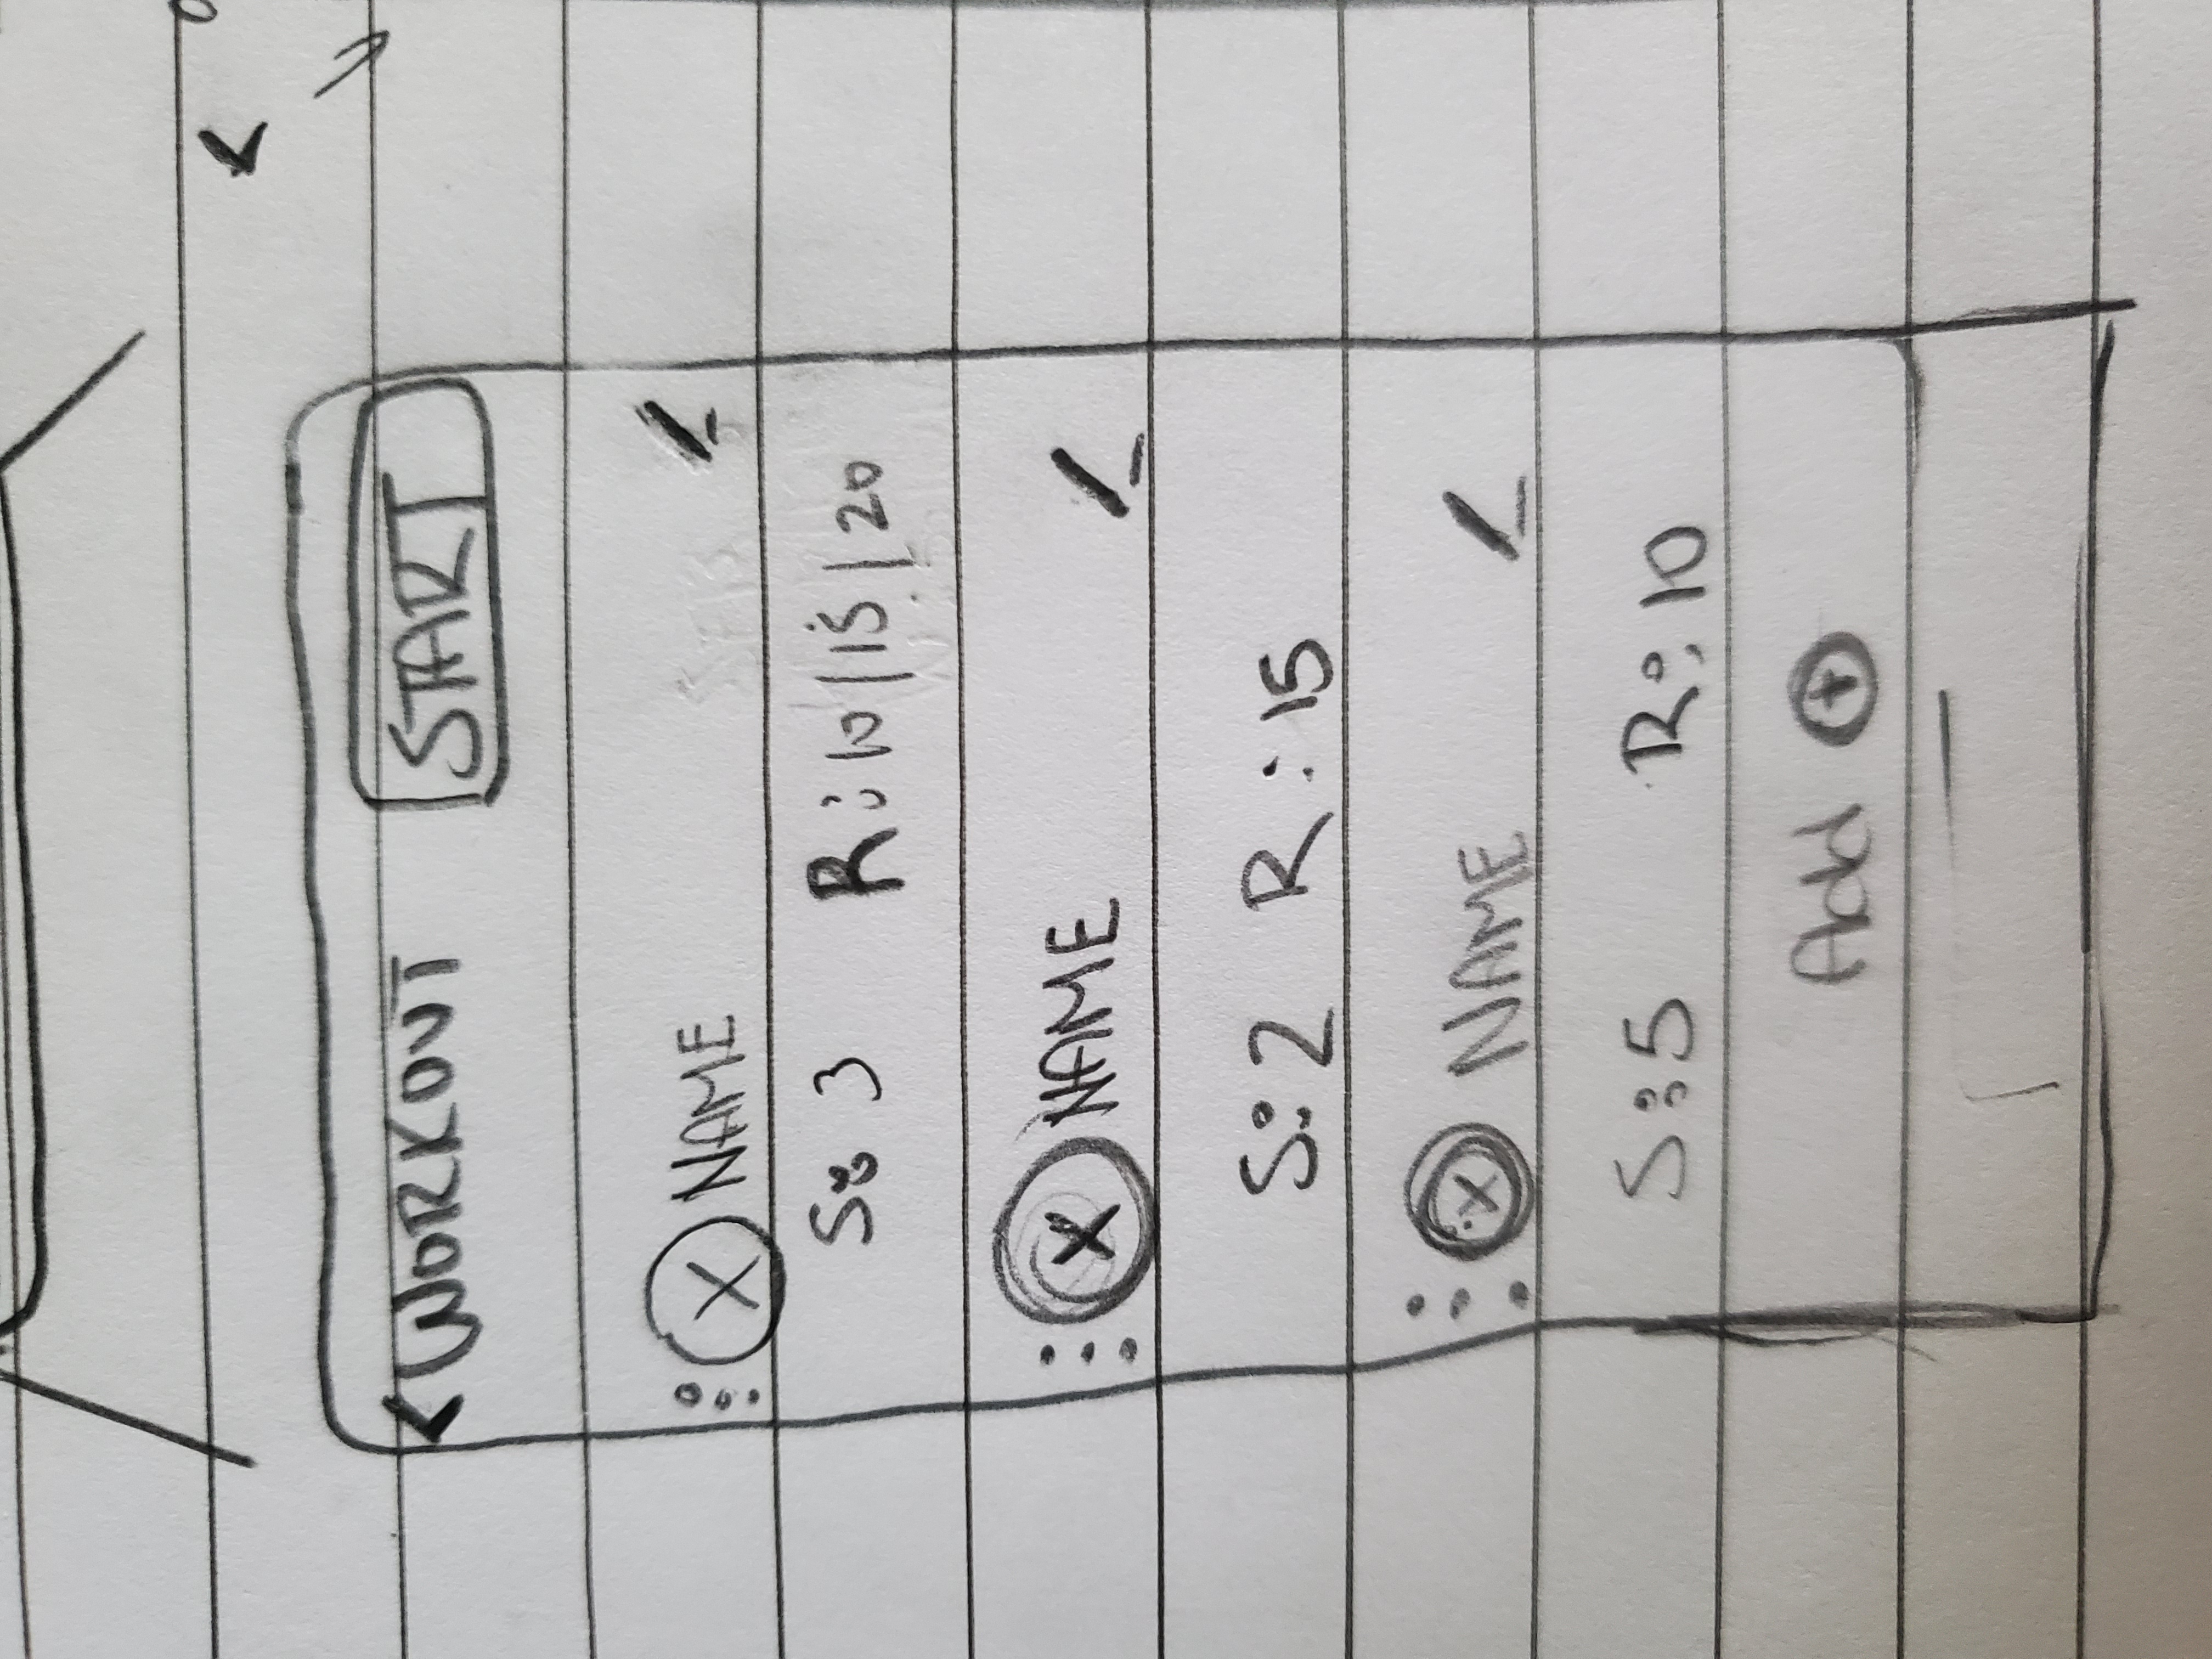 < WORKOUT START
X NAME
S: 3 R: 10/15/20
X NAME
S: 2 R: 15
X NAME
S: 5 R: 10
Add +